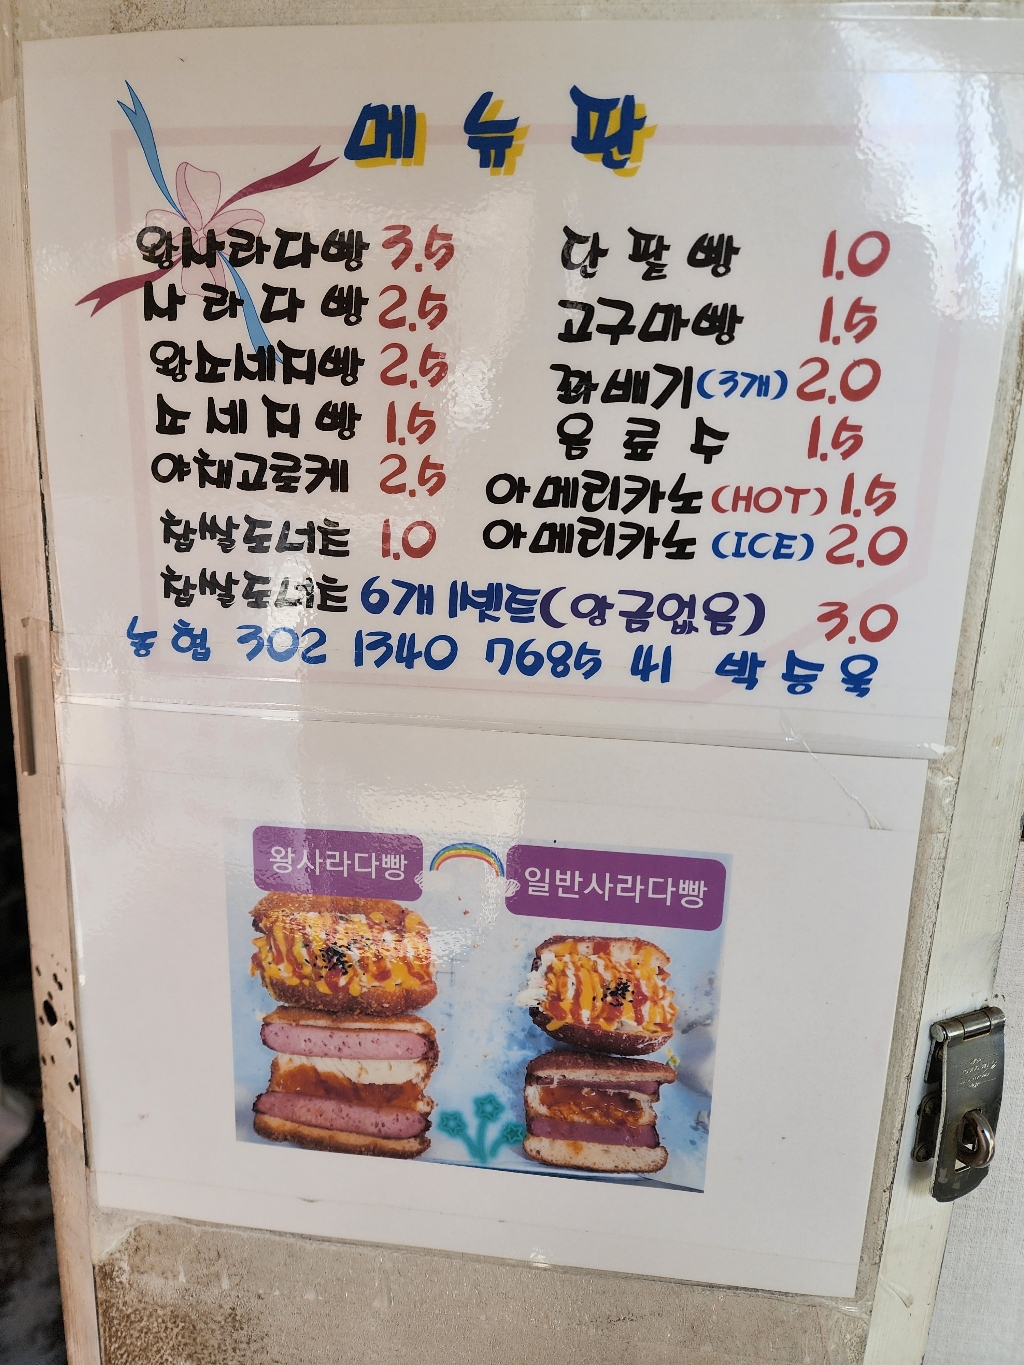 메뉴판
왕사라다빵 3.5
사라다빵 2.5
왕쏘세지빵 2.5
쏘세지빵 1.5
야채고로케 2.5
찹쌀도너츠 1.0
찹쌀도너츠 6개 1셋트(앙금없음) 3.0
단팥빵 1.0
고구마빵 1.5
꽈배기(3개) 2.0
음료수 1.5
아메리카노(HOT) 1.5
아메리카노(ICE) 2.0
농협 302 1340 7685 41 박승용
왕사라다빵
일반사라다빵